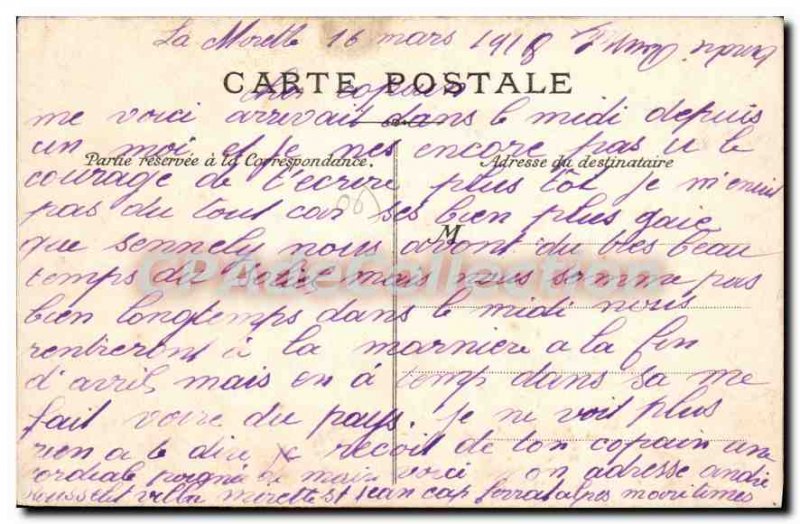 La Mirette 16 mars 1918
CARTE POSTALE
cher copain
me voici arrivait dans le midi depuis
un moi et je nes encore pas u le
Partie réservée à la Correspondance. Adresse du destinataire
courage de t'ecrire plus tôt je m'enuit
pas du tout car ses bien plus gaie
M
que sennely nous avont du tres beau
temps du soleil mais nous somme pas
CPA de Collection
bien longtemps dans le midi nous
rentreront à la marniere a la fin
d'avril, mais en á temp dans sa me
fait voire du pays. je ne voit plus
rien a te dire je recoit de ton copain une
cordiale poigne de main voici on adresse andré
rousselet villa mirette st jean cap ferrat alpes maritimes